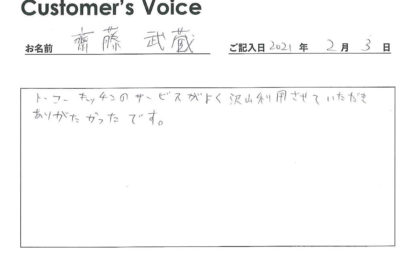 Customer's Voice
お名前 齊藤 武蔵 ご記入日 2021 年 2 月 3 日
トーコーキッチンのサービスがよく沢山利用させていただき
ありがたかったです。